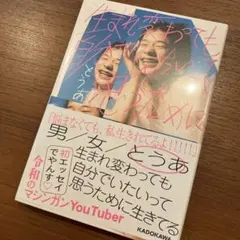 生まれ変わっても
とうあ
「飽きなくても、私生きれてるよ!!!!!」
男/女/とうあ
生まれ変わっても
自分でいたいって
思うために生きてる
初エッセイ
でやんす♡
令和の
マシンガンYouTuber
KADOKAWA